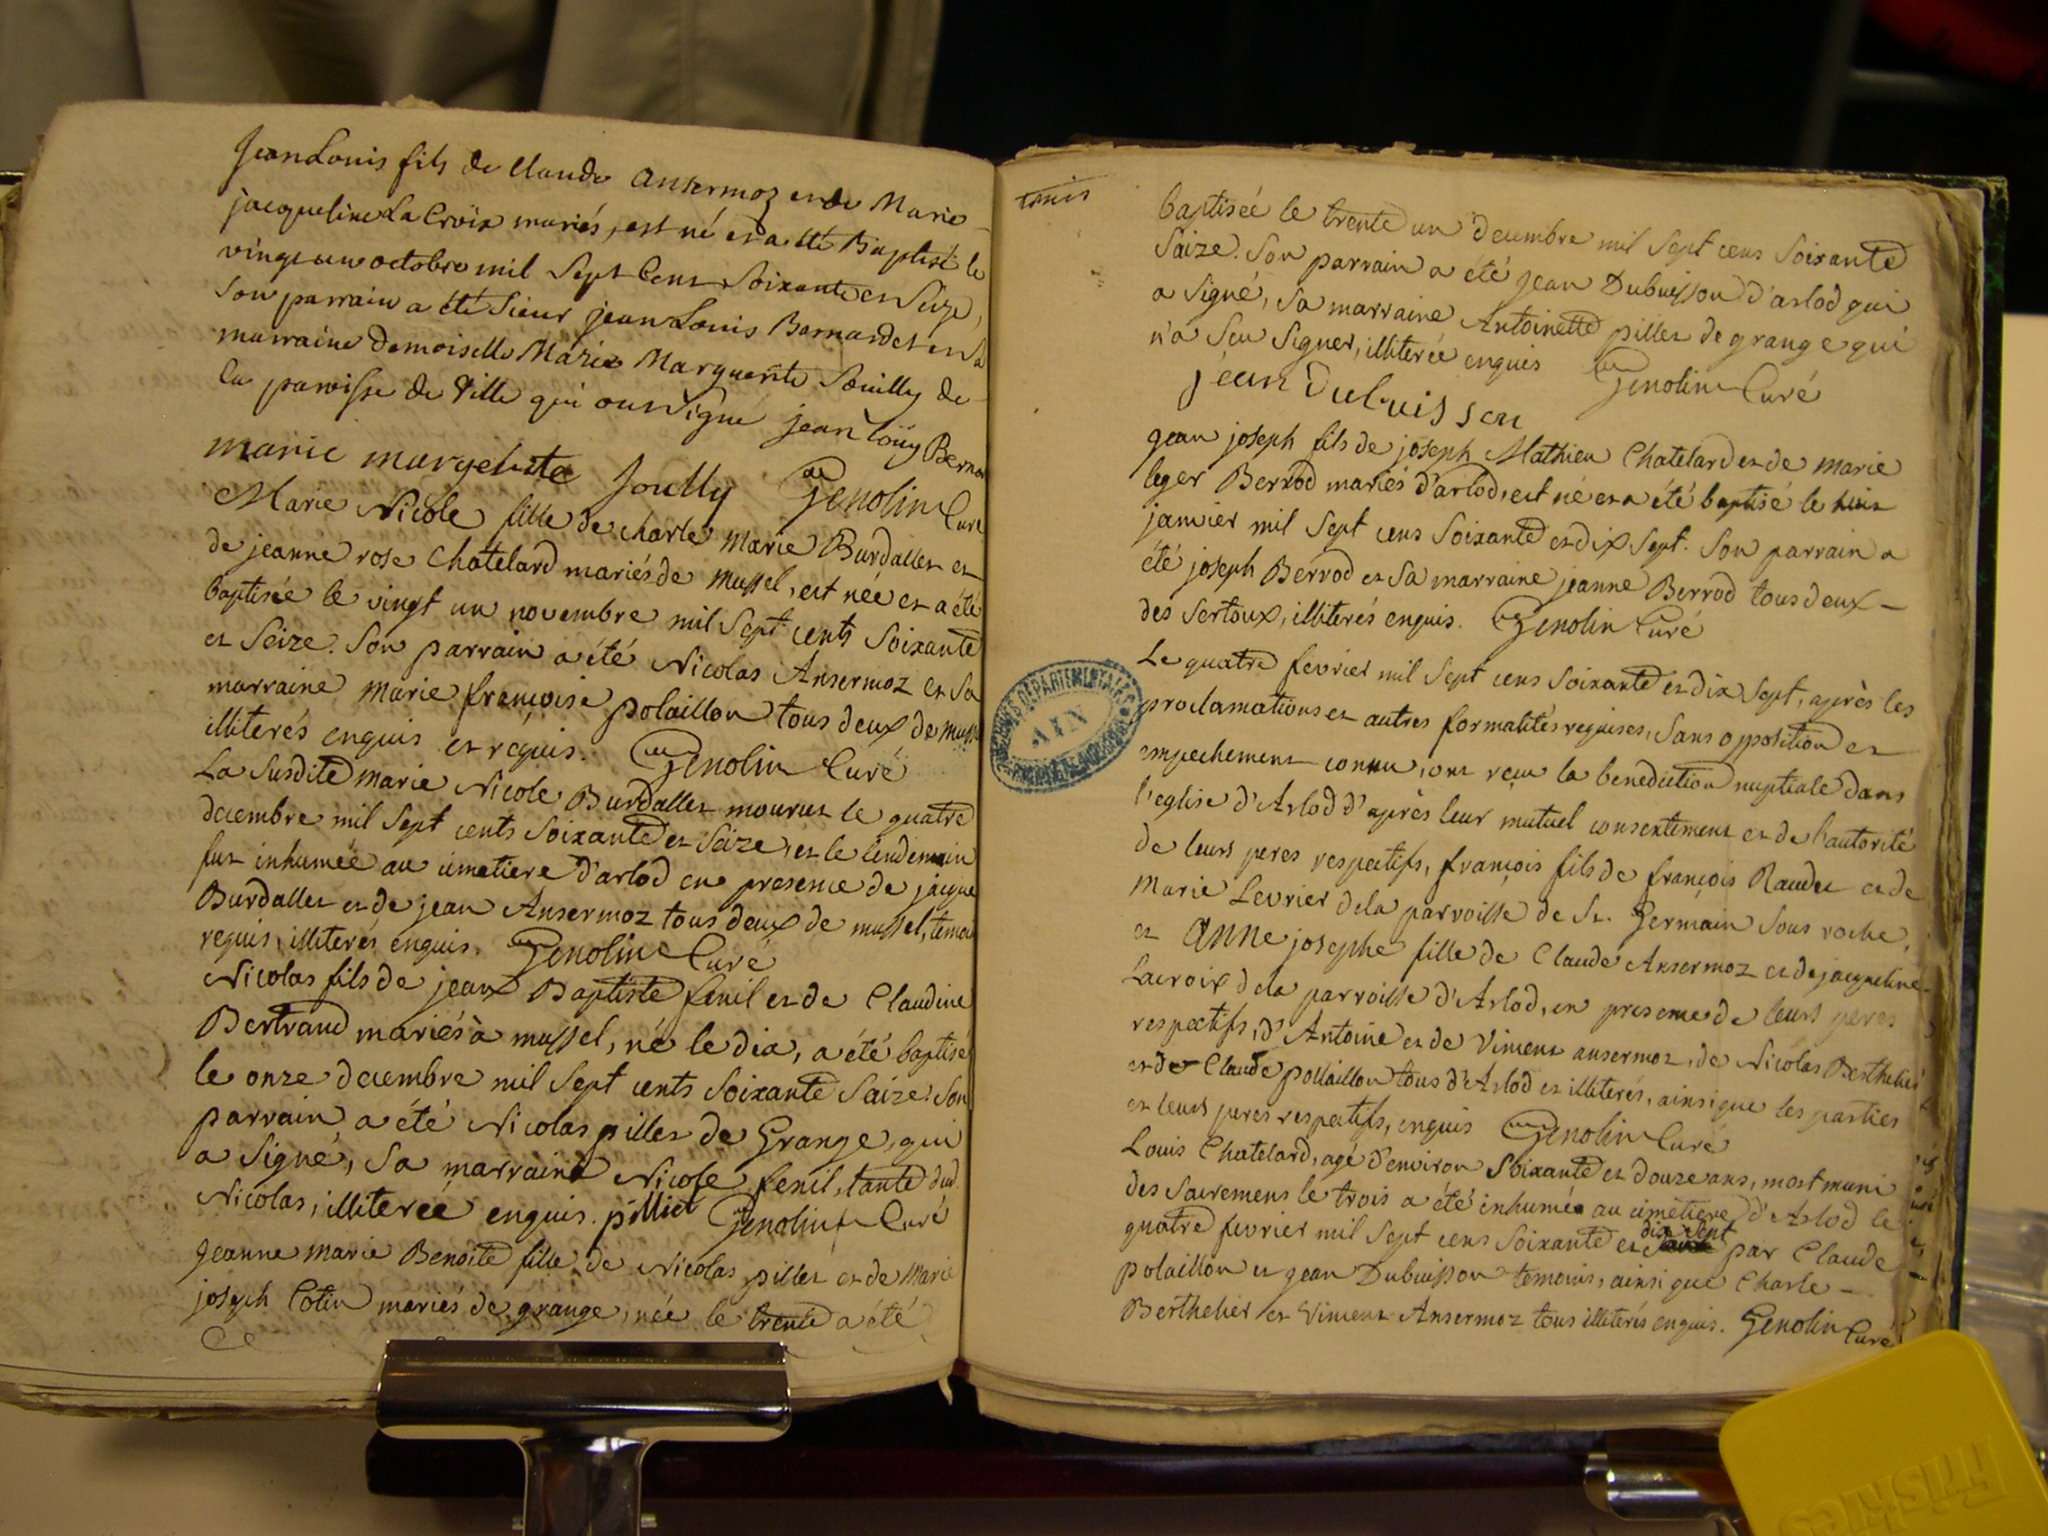 Jean Louis fils de Claude Ansermoz et de Marie
jacqueline La Croix mariés, est né et a été Baptisé le
vingt un octobre mil Sept Cent Soixante et Seize,
Son parrain a été Sieur jean Louis Bernardet et sa
marraine Demoiselle Marie Marguerite Souilly de
la paroisse de Ville qui ont Signé jean Loüy Berna
marie margerite Genolin Curé
Marie Nicole fille de charle Marie Burdallet et
de jeanne rose Chatelard mariés de mussel, est née et a été
baptisée le vingt un novembre mil Sept cents Soixante
et Seize. Son parrain a été Nicolas Ansermoz et Sa
marraine marie françoise polaillon tous deux de muss
illiterés enquis et requis. Genolin Curé
La Susdite marie Nicole Burdallet mourut le quatre
decembre mil Sept cents Soixante et Seize, et le lendemain
fut inhumée au cimetiere d'arlod en presence de jacque
Burdallet et de jean Ansermoz tous deux de mussel, temoi
requis, illiterés enquis. Genolin Curé
Nicolas fils de jean Baptiste fenil et de Claudine
Bertrand mariés à mussel, né le dix, a été baptisé
le onze decembre mil Sept cents Soixante Saize. Son
parrain a été Nicolas pillet de Grange, qui
a Signé, Sa marraine Nicole fenil, tante dud.
Nicolas, illiterée enquis. pilliet Genolin Curé
Jeanne marie Benoite fille de Nicolas pillet et de Marie
joseph Cotin mariés de grange, née le trente a été
trois
baptisée le trente un decembre mil Sept cens Soixante
Saize. Son parrain a été Jean Dubuisson d'arlod qui
a Signé, Sa marraine Antoinette pillet de grange qui
n'a Seu Signer, illiterée enquis Genolin Curé
jean Dubuisson
Jean joseph fils de joseph Mathieu Chatelard et de marie
leger Berrod mariés d'arlod, est né et a été baptisé le huit
janvier mil Sept cens Soixante et dix Sept. Son parrain a
été joseph Berrod et Sa marraine jeanne Berrod tous deux –
des Sertoux, illiterés enquis. Genolin Curé
Le quatre fevrier mil Sept cens Soixante et dix Sept, après les
proclamations et autres formalités requises, Sans opposition et
empechement connu, ont reçu la benediction nuptiale dans
l'eglise d'Arlod d'après leur mutuel consentement et de l'autorité
de leurs peres respectifs, françois fils de françois Raudet et de
Marie Levrier de la parroisse de St. Germain Sous roche,
et Anne josephe fille de Claude Ansermoz et de jacqueline
Lacroix de la parroisse d'Arlod, en presence de leurs peres
respectifs, d'Antoine et de Vincent ansermoz, de Nicolas Berthelier
et de Claude pollaillon tous d'Arlod et illiterés, ainsi que les parties
et leurs peres respectifs, enquis Genolin Curé
Louis Chatelard, agé d'environ Soixante et douze ans, mort muni
des Sacremens le trois a été inhumé au cimetiere d'Arlod le
quatre fevrier mil Sept cens Soixante et dix Sept par Claude
polaillon et jean Dubuisson temoins, ainsi que Charle –
Berthelier et Vincent Ansermoz tous illiterés enquis. Genolin Curé
ARCHIVES DEPARTEMENTALES
AIN
Friskies